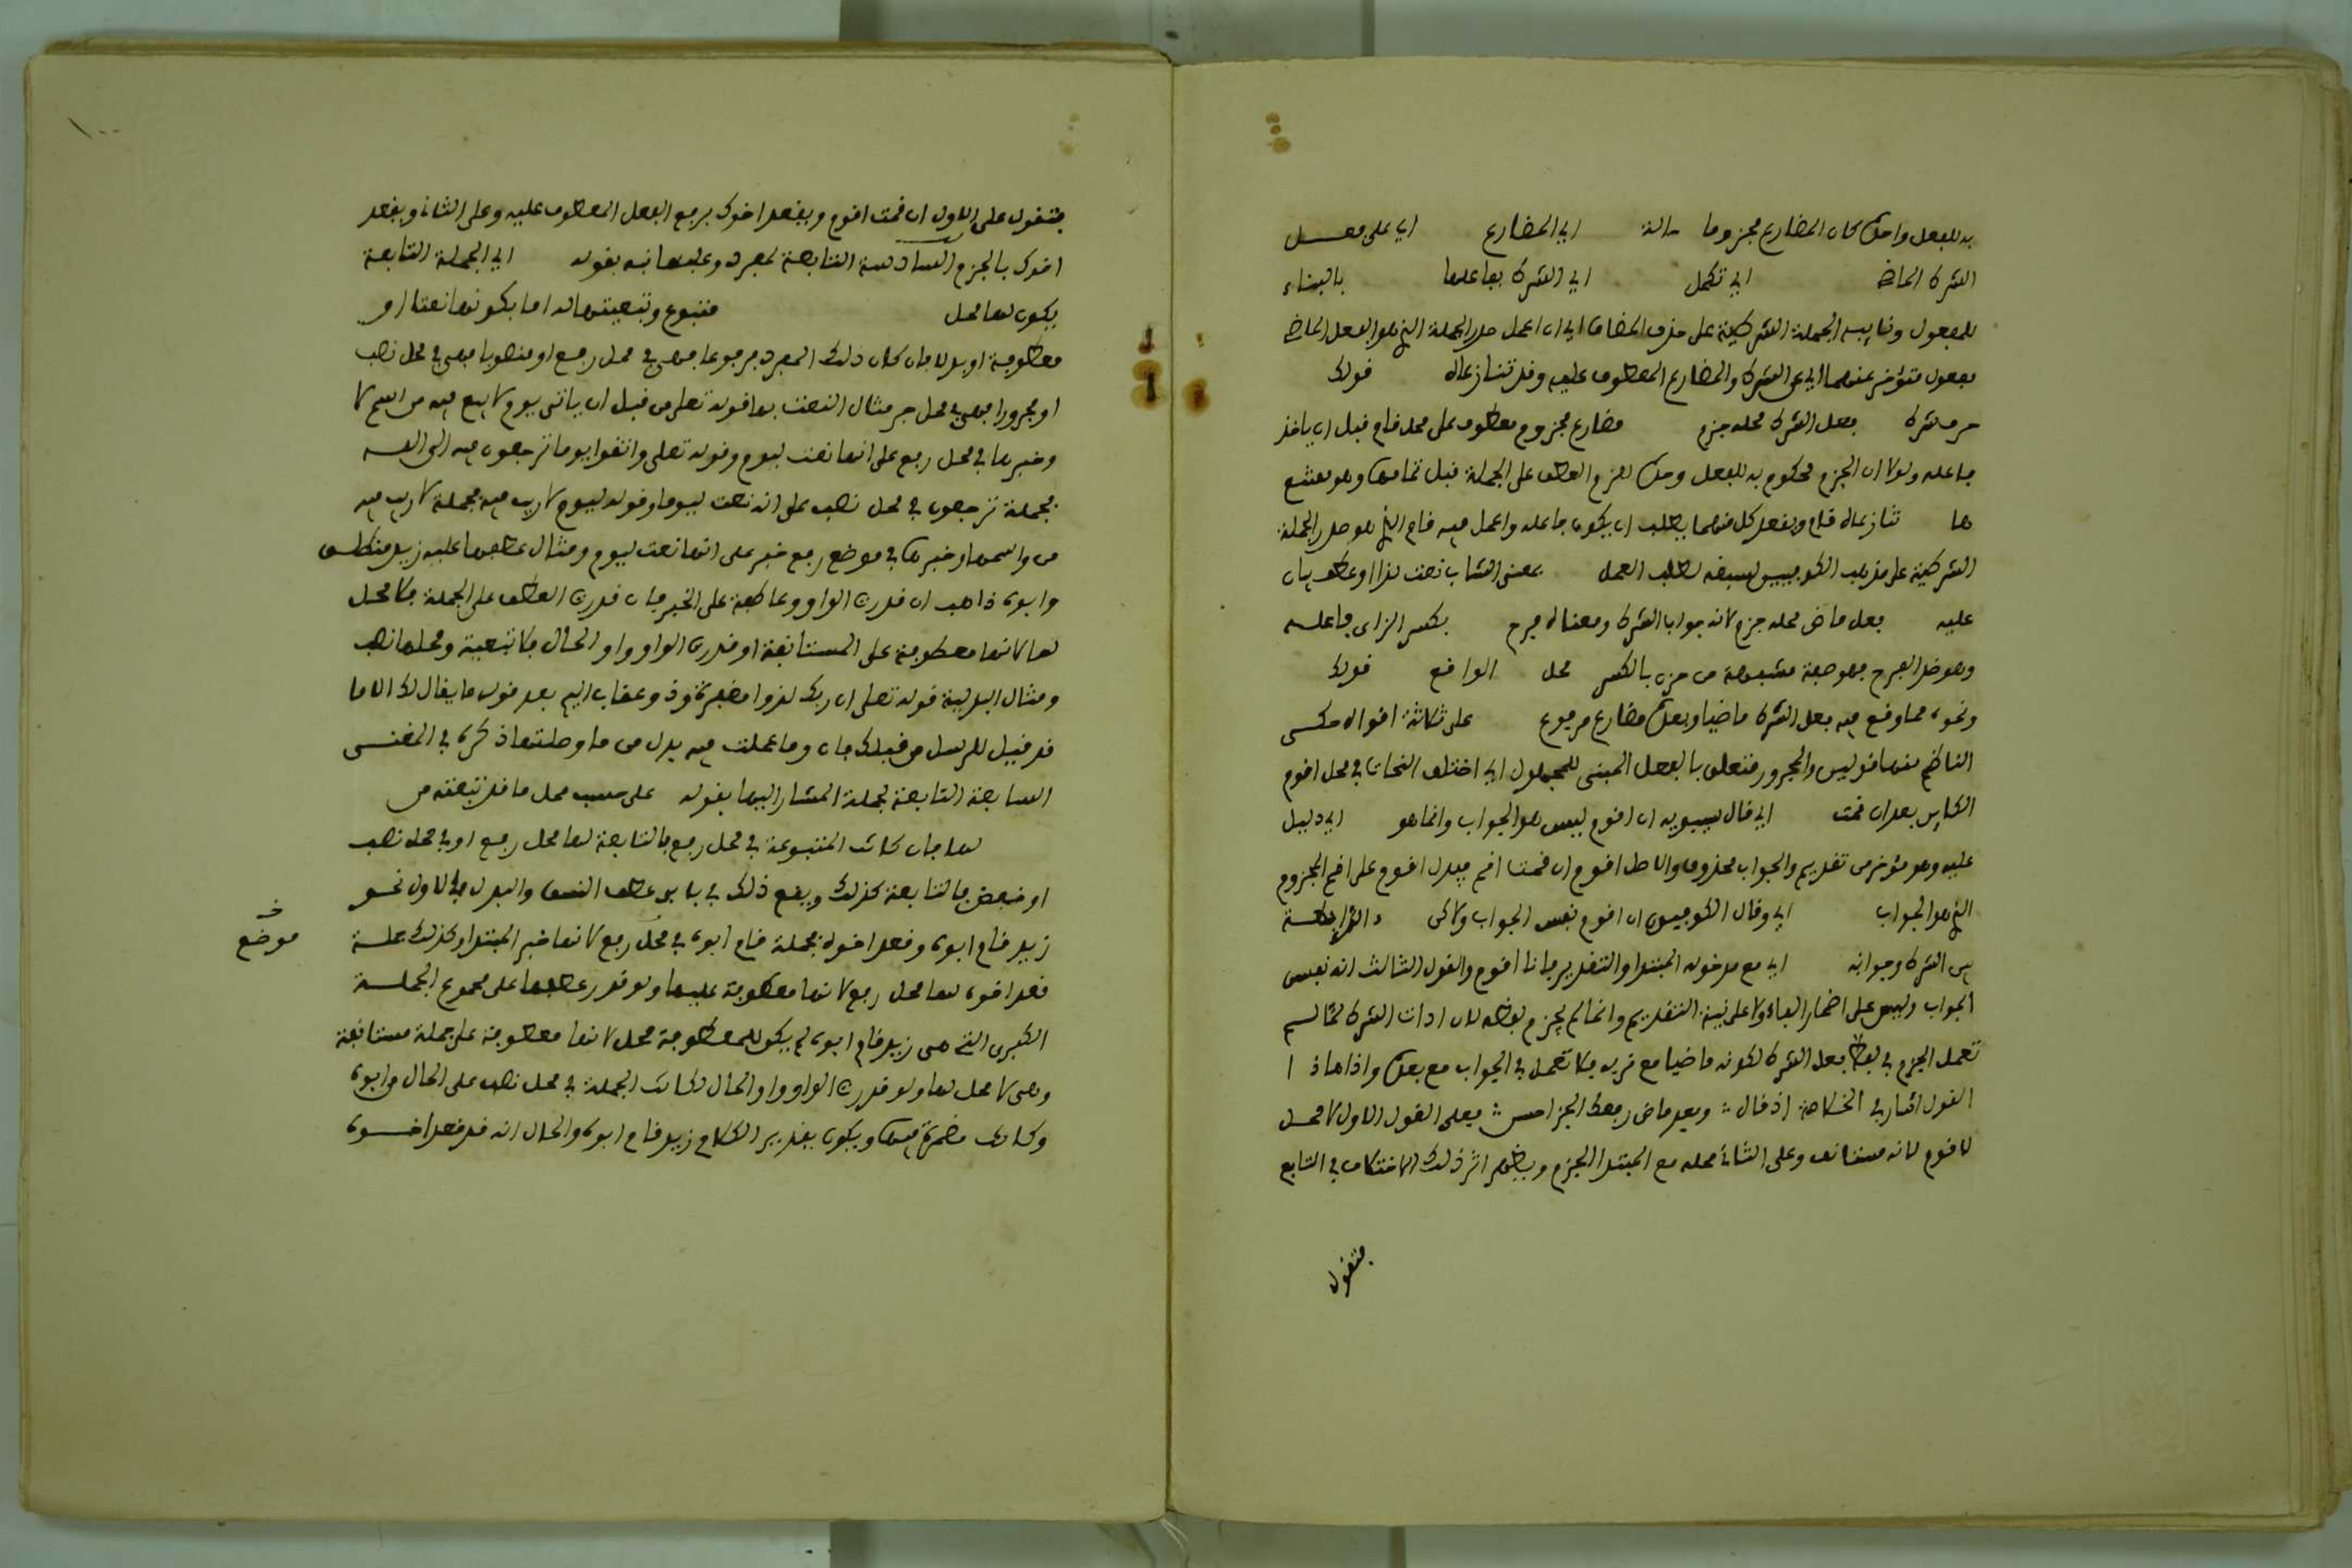 به للفعل وحده كان المضارع مجزوما اي المضارع اي على فعل
الشرط الماضي اي تكمل اي الشرط بفاعلها بالبناء
للمفعول ونايبه الجملة الشرطية على حذف المضاف اي ان اعمل صدر الجملة الذي هو الفعل الماضي
معمول متؤخر عنهما اي عن الشرط والمضارع المعطوف عليه وقد تنازعاه قولك
حرف شرط فعل الشرط محله جزم مضارع مجزوم معطوف على محل قام قبل ان ياخذ
فاعله ولولا ان الجزم محكوم به للفعل وحده لزم العطف على الجملة قبل تمامها وهو ممتنع
تنازعاه قام ويقعد كل منهما يطلب ان يكون فاعله واعمل فيه قام الذي هو صدر الجملة
الشرطية على مذهب الكوفيين لسبقه لطلب العمل بمعنى الشاب نعت لذا او عطف بيان
عليه فعل ماض محله جزم لانه جواب الشرط ومعناه فرح بكسر الزاي فاعله
وهو ضد الفرح فهو صفة مشبهة من حزن بالكسر محل الواقع قولك
ونحوه مما وقع فيه فعل الشرط ماضيا وبعده مضارع مرفوع على ثلاثة اقوال حكى
الناظم منها قولين والمجرور متعلق بالفعل المبني للمجهول اي اختلف النحات في محل اقوم
الكاين بعد ان قمت اي قال سيبويه ان اقوم ليس هو الجواب وانما هو اي دليل
عليه وهو مؤخر من تقديم والجواب محذوف والاصل اقوم ان قمت اقم فيدل اقوم على اقم المجزوم
الذي هو الجواب اي وقال الكوفيون ان اقوم نفس الجواب ولاكن الرابطة
بين الشرط وجوابه اي مع مدخوله المبتدا والتقدير فانا اقوم والقول الثالث انه نفس
الجواب وليس على اضمار الفاء ولا على نية التقديم وانما لم يجزم لفظه لان ادات الشرط لما لم
تعمل الجزم في لفظ فعل الشرط لكونه ماضيا مع قربه فلا تعمل في الجواب مع بعده والى هاذا
القول اشار في الخلاصة اذ قال وبعد ماض رفعك الجزا حسن فعلى القول الاول لا محل
لاقوم لانه مستانف وعلى الثاني محله مع المبتدا الجزم ويظهر اثر ذلك الاختلاف في التابع
فتقول
١٠٠
فتقول على الاول ان قمت اقوم ويقعد اخوك برفع الفعل المعطوف عليه وعلى الثاني ويقعد
اخوك بالجزم السادسة التابعة لمفرد وعليها نبه بقوله اي الجملة التابعة
يكون لها محل متبوع وتبعيتها له اما بكونها نعتا او
معطوفة او بدلا فان كان ذلك المفرد مرفوعا فهي في محل رفع او منصوبا فهي في محل نصب
او مجرورا فهي في محل جر مثال النعت بها قوله تعلى من قبل ان ياتي يوم لا بيع فيه من اسم لا
وخبرها في محل رفع على انها نعت ليوم وقوله تعلى واتقوا يوما ترجعون فيه الى الله
فجملة ترجعون في محل نصب على انه نعت ليوما وقوله ليوم لا ريب فيه فجملة لا ريب فيه
من واسمها وخبرها في موضع رفع خبر على انها نعت ليوم ومثال عطفها عليه زيد منطلق
وابوه ذاهب ان قدرت الواو عاطفة على الخبر فان قدرت العطف على الجملة فلا محل
لها لانها معطوفة على المستانفة او قدرت الواو واو الحال فلا تبعية ومحلها نصب
ومثال البدلية قوله تعلى ان ربك لذوا مغفرة وذو عقاب اليم بعد قوله ما يقال لك الا ما
قد قيل للرسل من قبلك فان وما عملت فيه بدل من ما وصلتها ذكره في المغني
السابعة التابعة لجملة المشار اليها بقوله على حسب محل ما قد تبعته من
لها فان كانت المتبوعة في محل رفع فالتابعة لها محل رفع او في محل نصب
او خفض فالتابعة كذلك ويقع ذلك في باب عطف النسق والبدل فالاول نحو
زيد قام ابوه وقعد اخوه فجملة قام ابوه في محل رفع لانها خبر المبتدا وكذلك جملة
خ
موضع
قعد اخوه لها محل رفع لانها معطوفة عليها ولو قدر عطفها على مجموع الجملة
الكبرى التي هي زيد قام ابوه لم يكن للمعطوفة محل لانها معطوفة على جملة مستانفة
وهي لا محل لها ولو قدرت الواو واو الحال لكانت الجملة في محل نصب على الحال من ابوه
وكانت مضمرة فيها ويكون تقدير الكلام زيد قام ابوه والحال انه قد قعد اخوه